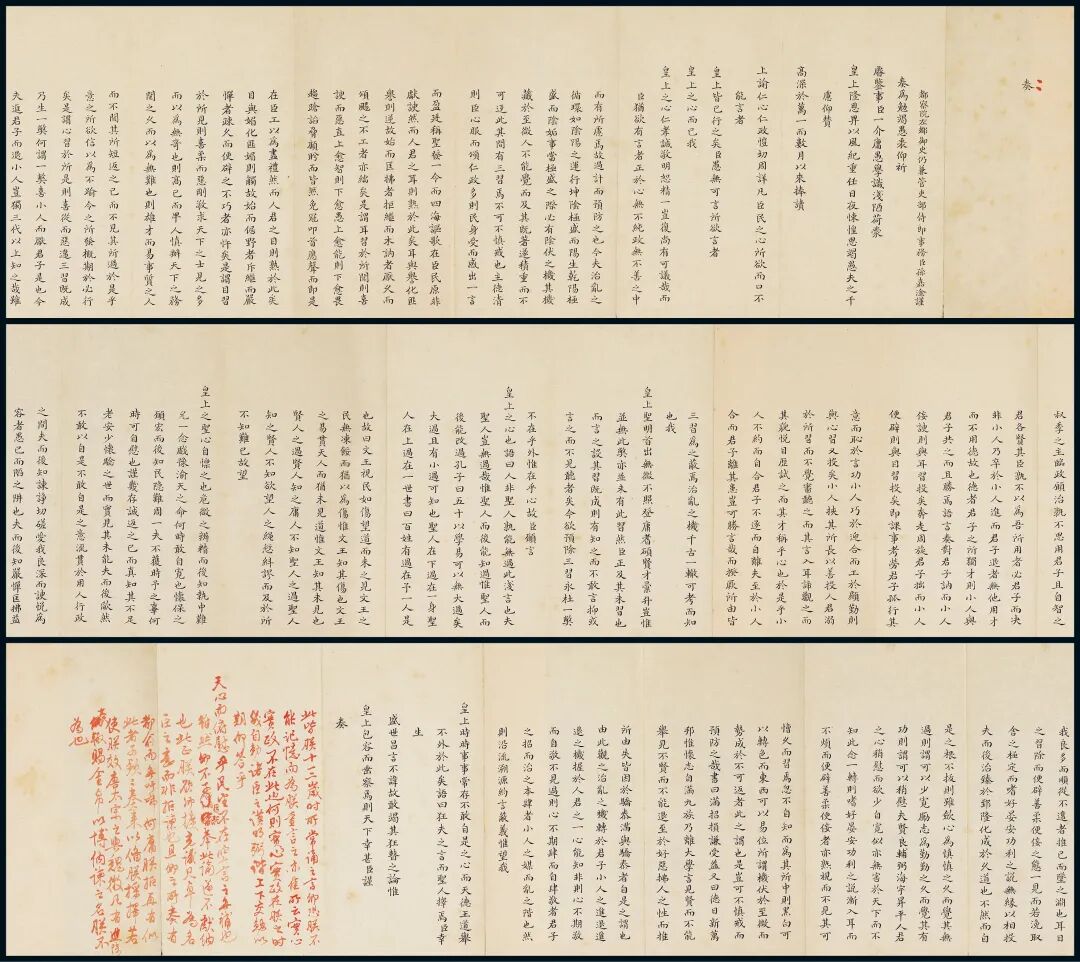 奏
都察院左都御史仍兼管吏部侍郎事務臣孫嘉淦謹
奏為勉竭愚衷仰祈
睿鑒事臣一介庸愚學識淺陋荷蒙
皇上隆恩畀以風紀重任日夜悚惶思竭愚夫之千
慮仰贊
高深於萬一而數月以來捧讀
上諭仁心仁政愷切周詳凡臣民之心所欲而口不
能言者
皇上皆已行之矣臣愚無可言所欲言者
皇上之心而已我
皇上之心仁孝誠敬明恕精一豈復尚有可議哉而
臣猶欲有言者正於心無不純政無不善之中
而有所慮焉故過計而預防之也今夫治亂之
循環如陰陽之運行坤陰極盛而陽生乾陽極
盛而陰姤事當極盛之際必有陰伏之機其機
藏於至微人不能覺而及其既著遂積重而不
可返此其間有三習焉不可不慎戒也主德清
則臣心服而頌仁政多則民身受而感出一言
而盈廷稱聖發一令而四海謳歌在臣民原非
獻諛然而人君之耳則熟於此矣耳與譽化匪
譽則逆故始而匡拂者拒繼而木訥者厭久而
頌颺之不工者亦絀矣是謂耳習於所聞則喜
諛而惡直上愈智則下愈愚上愈能則下愈畏
趨蹌諂脅顧盼而皆然免冠叩首應聲而即是
在臣工以為盡禮然而人君之目則熟於此矣
目與媚化匪媚則觸故始而倨野者斥繼而嚴
憚者疎久而便辟之不巧者亦忤矣是謂目習
於所見則喜柔而惡剛敬求天下之士見之多
而以為無奇也則高己而卑人慎辦天下之務
閱之久而以為無難也則雄才而易事質之人
而不聞其所短返之己而不見其所過於是乎
意之所欲信以為不踰令之所發概期於必行
矣是謂心習於所是則喜從而惡違三習既成
乃生一獘何謂一獘喜小人而厭君子是也今
夫進君子而退小人豈獨三代以上知之哉雖
叔季之主臨政願治孰不思用君子且自智之
君各賢其臣孰不以為吾所用者必君子而決
非小人乃卒於小人進而君子退者無他用才
而不用德故也德者君子之所獨才則小人與
君子共之而且勝焉語言奏對君子訥而小人
佞諛則與耳習投矣奔走周旋君子拙而小人
便辟則與目習投矣即課事考勞君子孤行其
意而恥於言功小人巧於迎合而工於顯勤則
與心習又投矣小人挾其所長以善投人君溺
於所習而不覺審聽之而其言入耳諦觀之而
其貌悅目歷試之而其才稱乎心也於是乎小
人不約而自合君子不逐而自離夫至於小人
合而君子離其患豈可勝言哉而揆厥所由皆
三習為之蔽焉治亂之機千古一轍可考而知
也我
皇上聖明首出無微不照登庸耆碩賢才彙升豈惟
並無此獘亦並未有此習然臣正及其未習也
而言之設其習既成則有知之而不敢言抑或
言之而不見能者矣今欲預除三習永杜一獘
不在乎外惟在乎心故臣願言
皇上之心也語曰人非聖人孰能無過此淺言也夫
聖人豈無過哉惟聖人而後能知過惟聖人而
後能改過孔子曰五十以學易可以無大過矣
大過且有小過可知也聖人在下過在一身聖
人在上過在一世書曰百姓有過在予一人是
也故曰文王視民如傷望道而未之見文王之
民無凍餒而猶以為傷惟文王知其傷也文王
之易貫天人而猶未見道惟文王知其未見也
賢人之過賢人知之庸人不知聖人之過聖人
知之賢人不知欲望人之繩愆糾謬而及於所
不知難已故望
皇上之聖心自懍之也危微之辨精而後知執中難
允一念戲豫渝天之命何時敢自寬也懷保之
願宏而後知民隱難周一夫不獲時予之辜何
時可自慰也謹幾存誠返之己而真知其不足
老安少懷驗之世而實見其未能夫而後欿然
不敢以自是不敢自是之意流貫於用人行政
之間夫而後知諫諍切磋愛我良深而諛悅為
容者愚己而陷之阱也夫而後知嚴憚匡拂益
我良多而順從不違者推己而墜之淵也耳目
之習除而便辟善柔便佞之態一見而若浼取
舍之極定而嗜好晏安功利之說無緣以相投
夫而後治臻於郅隆化成於久道也不然而自
是之根不拔則雖斂心為慎慎之久而覺其無
過則謂可以少寬勵志為勤勤之久而覺其有
功則謂可以稍慰夫賢良輔弼海宇昇平人君
之心稍慰而欲少自寬似亦無害於天下而不
知此念一轉則嗜好晏安功利之說漸入耳而
不煩而便辟善柔便佞者亦熟視而不見其可
憎久而習焉忽不自知而為其所中則黑白可
以轉色而東西可以易位所謂機伏於至微而
勢成於不可返者此之謂也是豈可不慎戒而
預防之哉書曰滿招損謙受益又曰德日新萬
邦惟懷志自滿九族乃離大學言見賢而不能
舉見不賢而不能退至於好惡拂人之性而推
所由失皆因於驕泰滿與驕泰者自是之謂也
由此觀之治亂之機轉於君子小人之進退進
退之機握於人君之一心能知非則心不期敬
而自敬不見過則心不期肆而自肆敬者君子
之招而治之本肆者小人之媒而亂之階也然
則沿流溯源約言蔽義惟望我
皇上時時事事常存不敢自是之心而天德王道舉
不外於此矣語曰狂夫之言而聖人擇焉臣幸
生
盛世昌言不諱故敢竭其狂瞽之論惟
皇上包容而垂察焉則天下幸甚臣謹
奏
此皆朕十三歲時所常誦之言卿慮朕不
能記憶而為朕重言之亦惟所云實心
實政不在此也何則實心實政在朕之時
天心而俯慰乎民望不在此